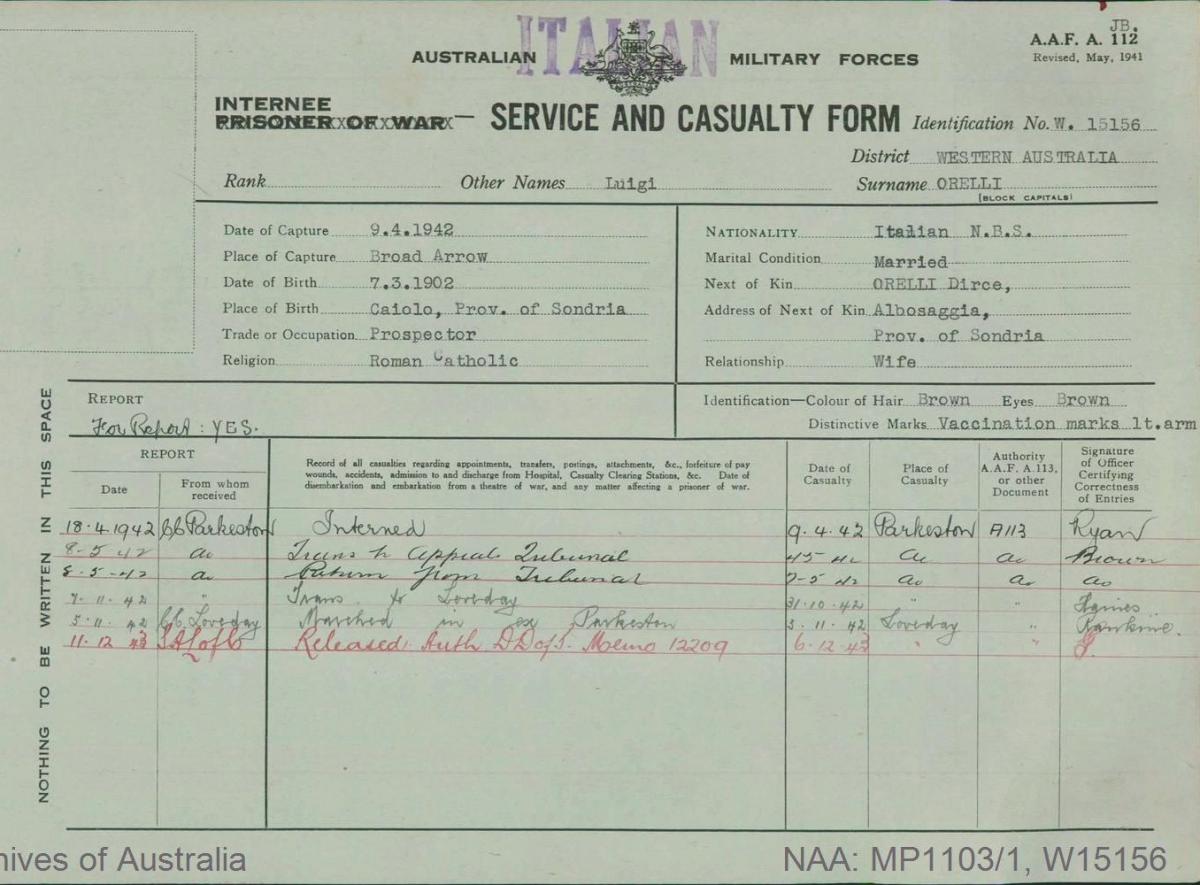 JB.
ITALIAN
A.A.F. A. 112
Revised, May, 1941
AUSTRALIAN MILITARY FORCES
INTERNEE
PRISONER OF WAR — SERVICE AND CASUALTY FORM Identification No. W. 15156
District WESTERN AUSTRALIA
Rank Other Names Luigi Surname ORELLI
(BLOCK CAPITALS)
Date of Capture 9.4.1942
Place of Capture Broad Arrow
Date of Birth 7.3.1902
Place of Birth Caiolo, Prov. of Sondria
Trade or Occupation Prospector
Religion Roman Catholic
NATIONALITY Italian N.B.S.
Marital Condition Married
Next of Kin ORELLI Dirce,
Address of Next of Kin Albosaggia,
Prov. of Sondria
Relationship Wife
REPORT
For Report : YES.
Identification—Colour of Hair Brown Eyes Brown
Distinctive Marks Vaccination marks lt.arm
REPORT
Date
From whom received
Record of all casualties regarding appointments, transfers, postings, attachments, &c., forfeiture of pay
wounds, accidents, admission to and discharge from Hospital, Casualty Clearing Stations, &c. Date of
disembarkation and embarkation from a theatre of war, and any matter affecting a prisoner of war.
Date of Casualty
Place of Casualty
Authority A.A.F. A.113, or other Document
Signature of Officer Certifying Correctness of Entries
18.4.1942 CC Parkeston Interned 9.4.42 Parkeston A113 Ryan
8-5-42 do Trans to Appeals Tribunal do do Brown
8-5-42 do Return from Tribunal 7-5-42 do do do
7.11.42 " Trans to Loveday 31.10.42 " "
5.11.42 CC Loveday Marched in ex Parkeston 3.11.42 Loveday " Rankine.
11.12.43 Released. Auth DDofS. Memo 12209 6.12.43 " "
NOTHING TO BE WRITTEN IN THIS SPACE
hives of Australia
NAA: MP1103/1, W15156